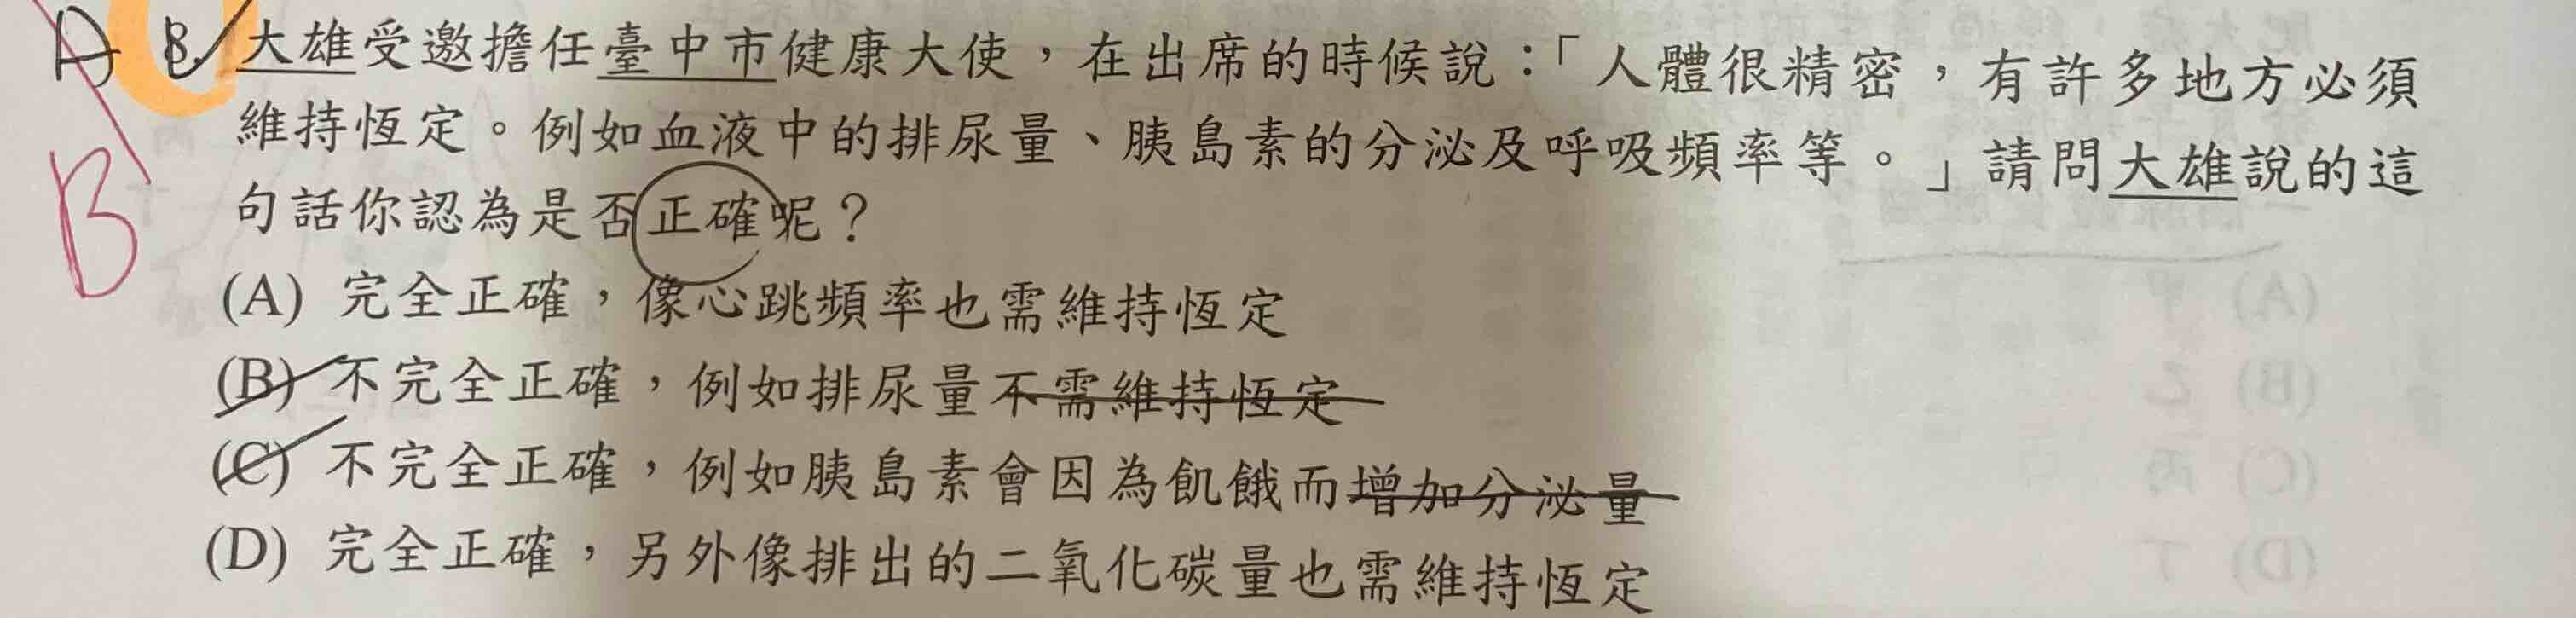 A 8. 大雄受邀擔任臺中市健康大使，在出席的時候說：「人體很精密，有許多地方必須
維持恆定。例如血液中的排尿量、胰島素的分泌及呼吸頻率等。」請問大雄說的這
B
句話你認為是否正確呢？
(A) 完全正確，像心跳頻率也需維持恆定
(B) 不完全正確，例如排尿量不需維持恆定
(C) 不完全正確，例如胰島素會因為飢餓而增加分泌量
(D) 完全正確，另外像排出的二氧化碳量也需維持恆定